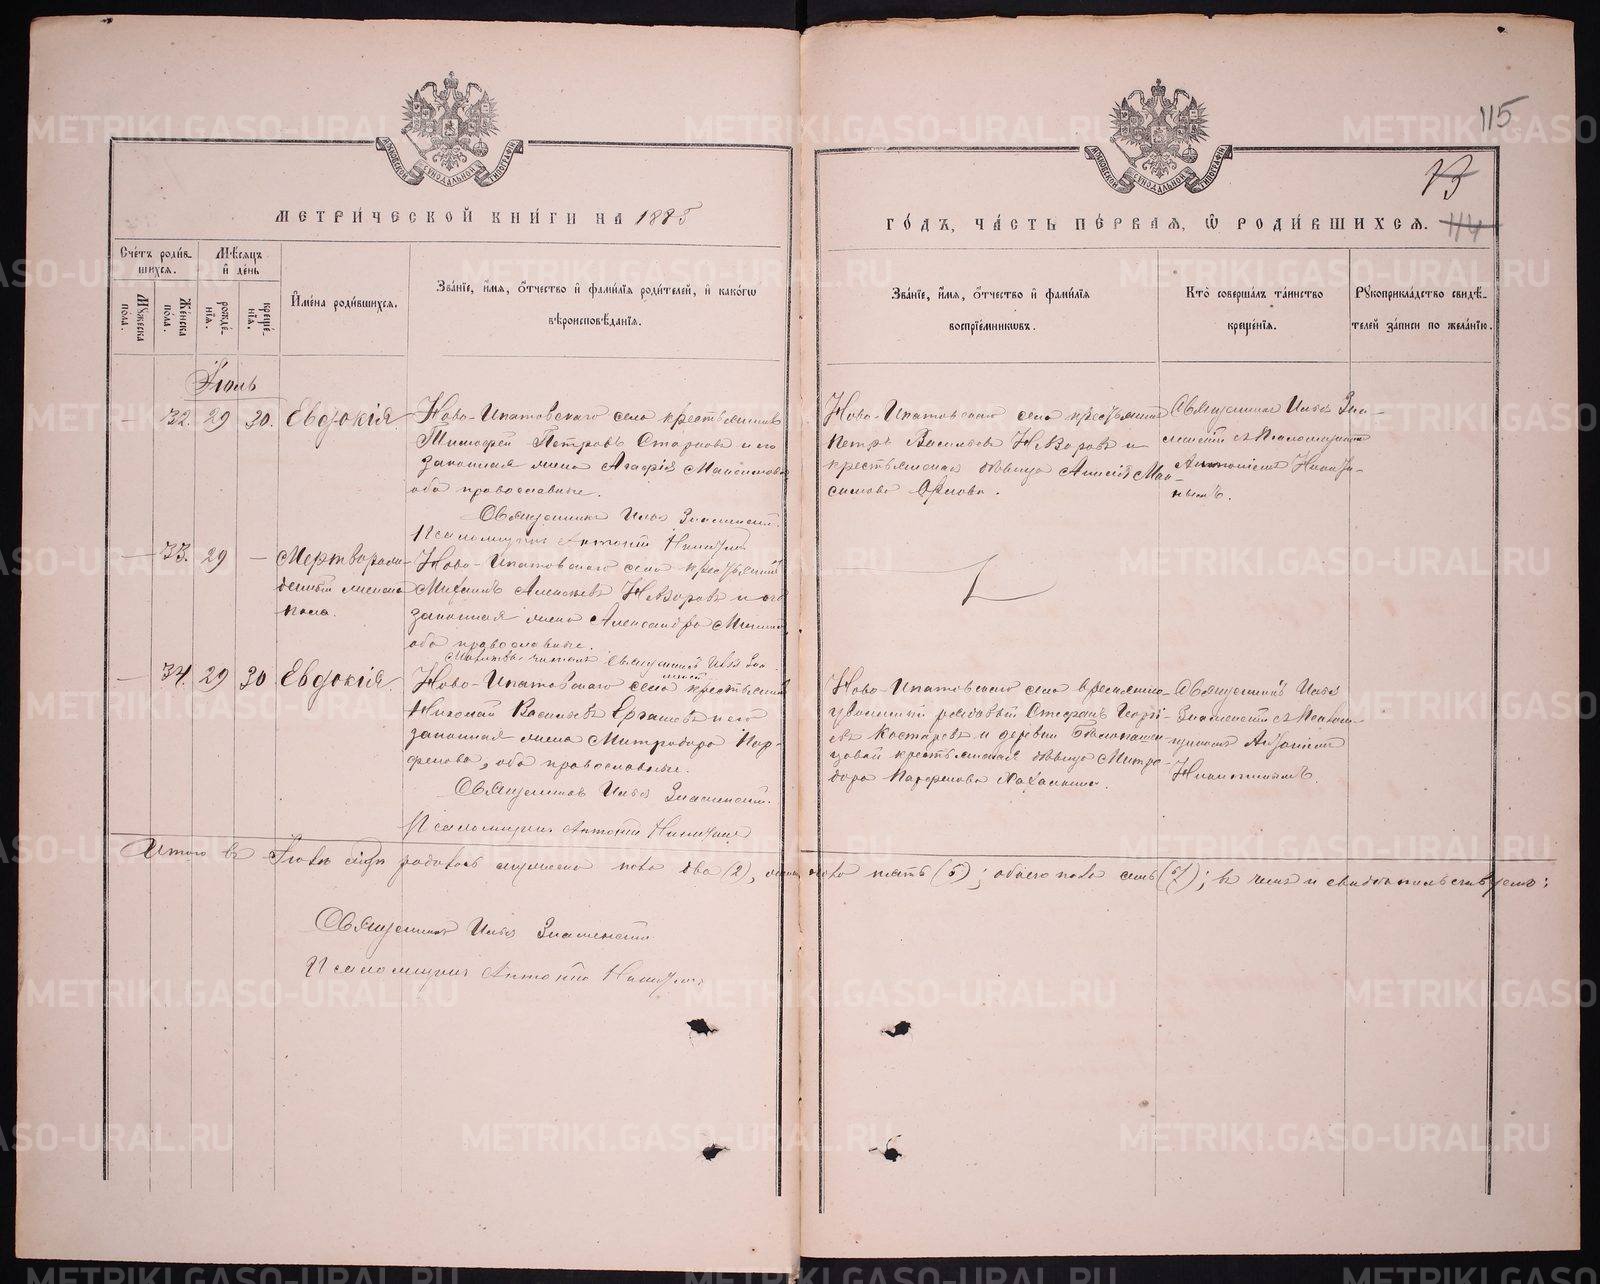 115
13
114
МЕТРИЧЕСКОЙ КНИГИ НА 1885
ГОДЪ, ЧАСТЬ ПЕРВАЯ, Ѿ РОДИВШИХСЯ.
МОСКОВСКОЙ СѴНОДАЛЬНОЙ ТИПОГРАФІИ
МОСКОВСКОЙ СѴНОДАЛЬНОЙ ТИПОГРАФІИ
Счетъ родив-
шихся.
Мѣсяцъ
и день
Мужеска
пола.
Женска
пола.
рожде-
нія.
креще-
нія.
Имена родившихся.
Званіе, имя, отчество и фамилія родителей, и какогѡ
вѣроисповѣданія.
Званіе, имя, отчество и фамилія
воспріемникѡвъ.
Кто совершалъ таинство
крещенія.
Рукоприкладство свидѣ-
телей записи по желанію.
Іюль
32. 29 30. Евдокія.
Ново-Ипатовскаго села крестьянинъ
Тимофей Петровъ Старковъ и его
законная жена Агафія Максимова
оба православные.
Священникъ Илья Знаменскій.
Псаломщикъ Антоній Никитинъ
Ново-Ипатовскаго села крестьянинъ
Петръ Васильевъ Невзоровъ и
крестьянская дѣвица Анисія Мак-
симова
Священникъ Илья Зна-
менскій съ Псаломщикомъ
Антоніемъ Никити-
нымъ.
33. 29 — Мертворож-
денный женска
пола.
Ново-Ипатовскаго села крестьянинъ
Михаилъ Алексѣевъ Невзоровъ и его
законная жена Александра
оба православные.
Молитвы читалъ Священникъ Илья Зна-
менскій
34. 29 30 Евдокія.
Ново-Ипатовскаго села крестьянинъ
Николай Васильевъ Ергашевъ и его
законная жена Митродора Пар-
фенова, оба православные.
Священникъ Илья Знаменскій.
Псаломщикъ Антоній Никитинъ
Ново-Ипатовскаго села
уволенный рядовый Стефанъ Георгі-
евъ Костаревъ и деревни
крестьянская дѣвица Митро-
дора Парфенова
Священникъ Илья
Знаменскій съ Псалом-
щикомъ Антоніемъ
Никитинымъ.
Итого въ Іюлѣ мѣсяцѣ родилось мужеска пола два (2), женска пола пять (5); обоего пола семь (7); въ чемъ и свидѣтельствуемъ:
Священникъ Илья Знаменскій
Псаломщикъ Антоній Никитинъ
METRIKI.GASO-URAL.RU